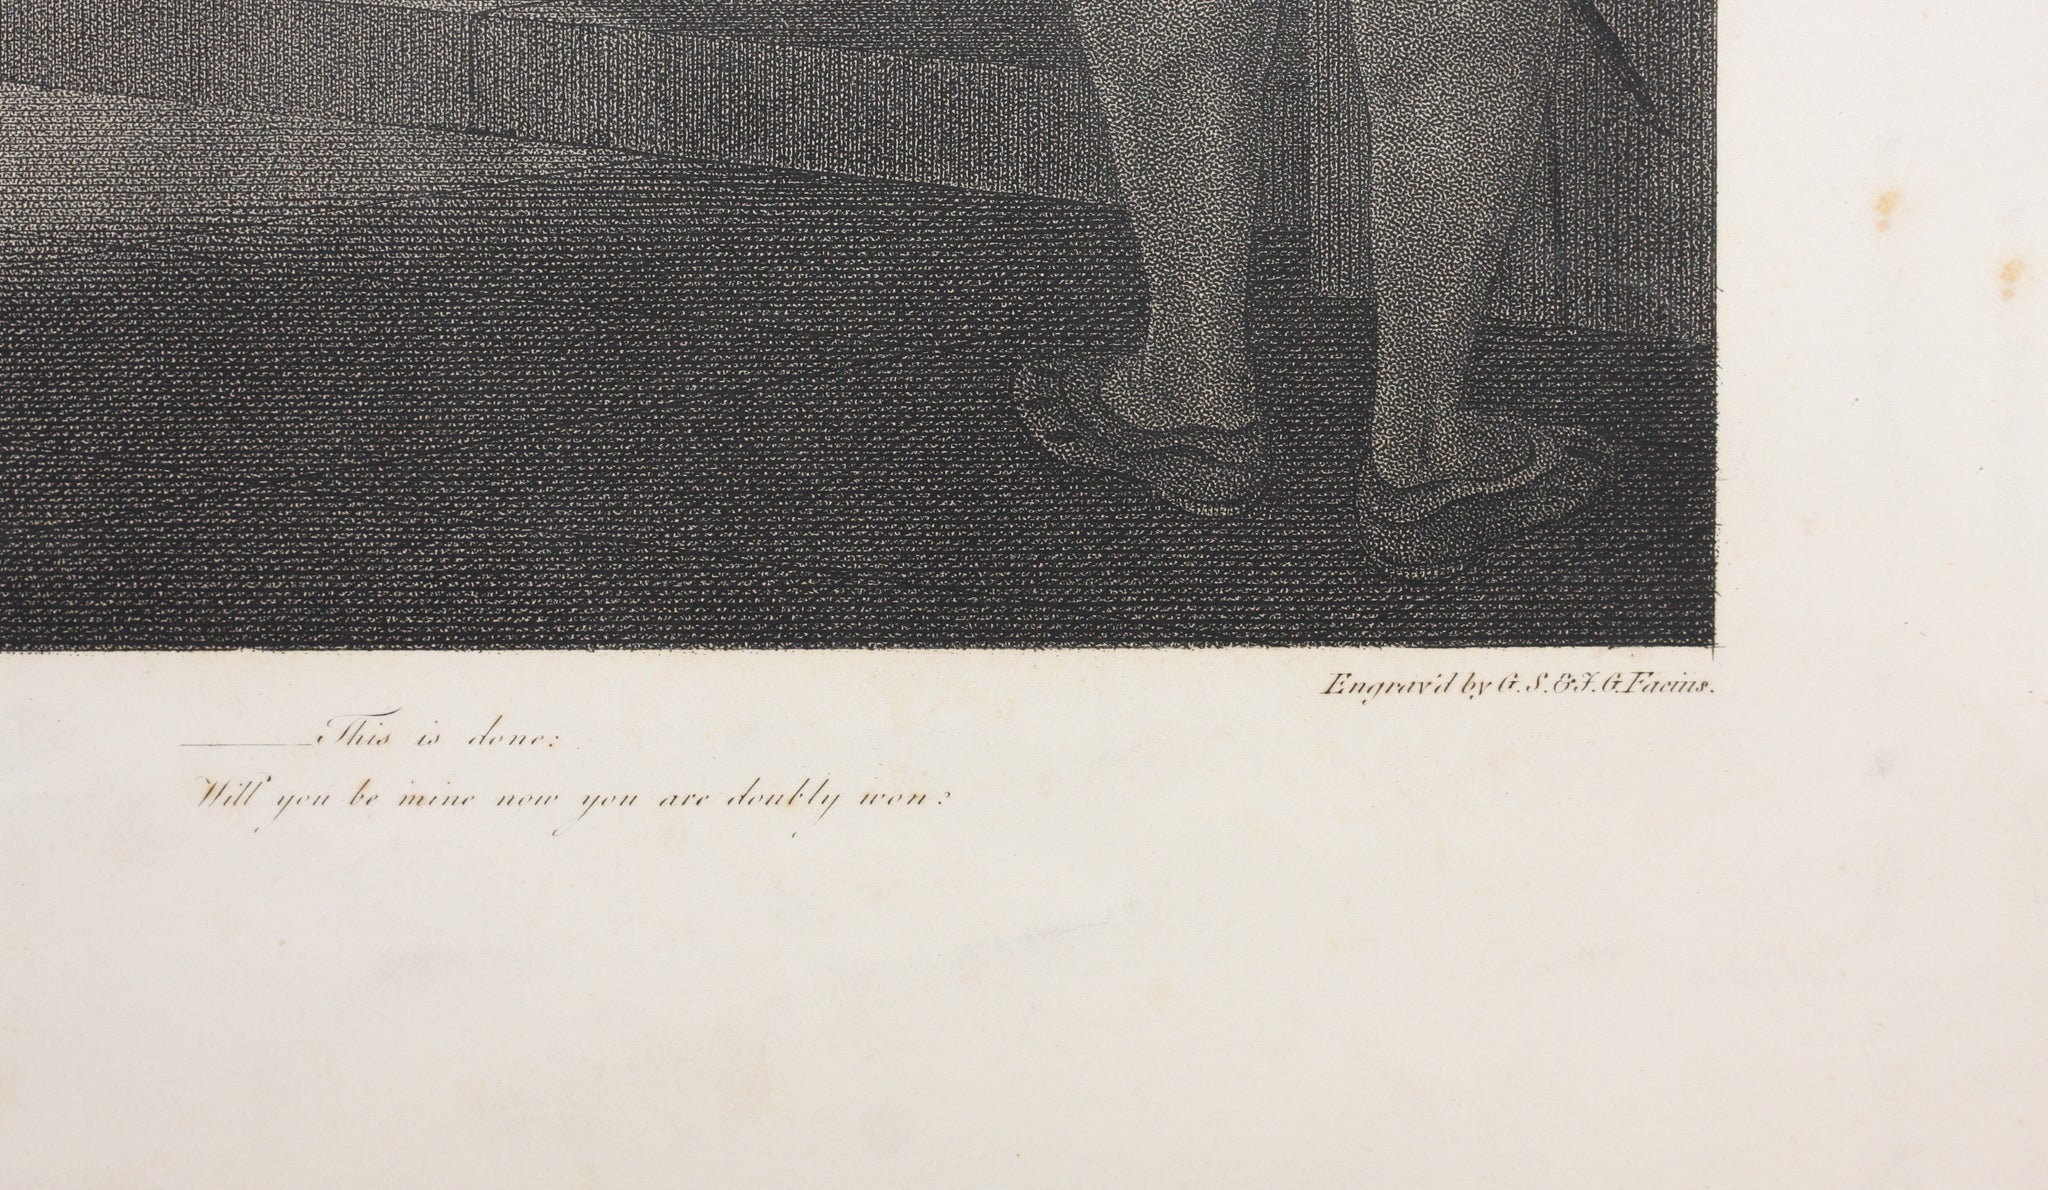 Engrav'd by G. S. & J. G. Facius.
———This is done:
Will you be mine now you are doubly won?